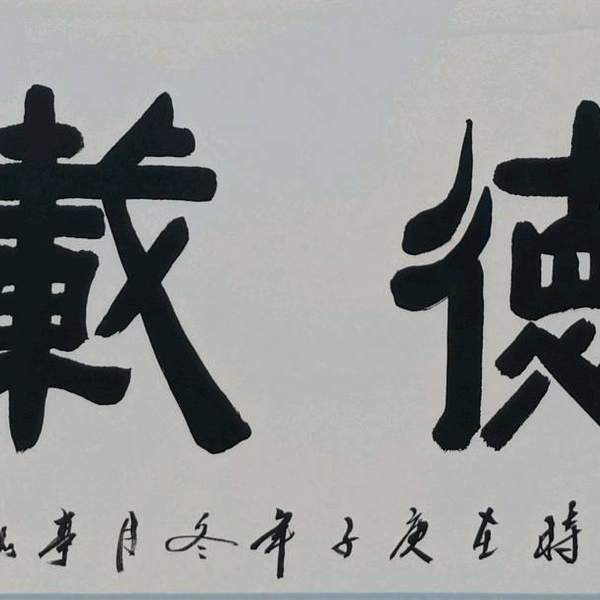 德載
時在庚子年冬月亭